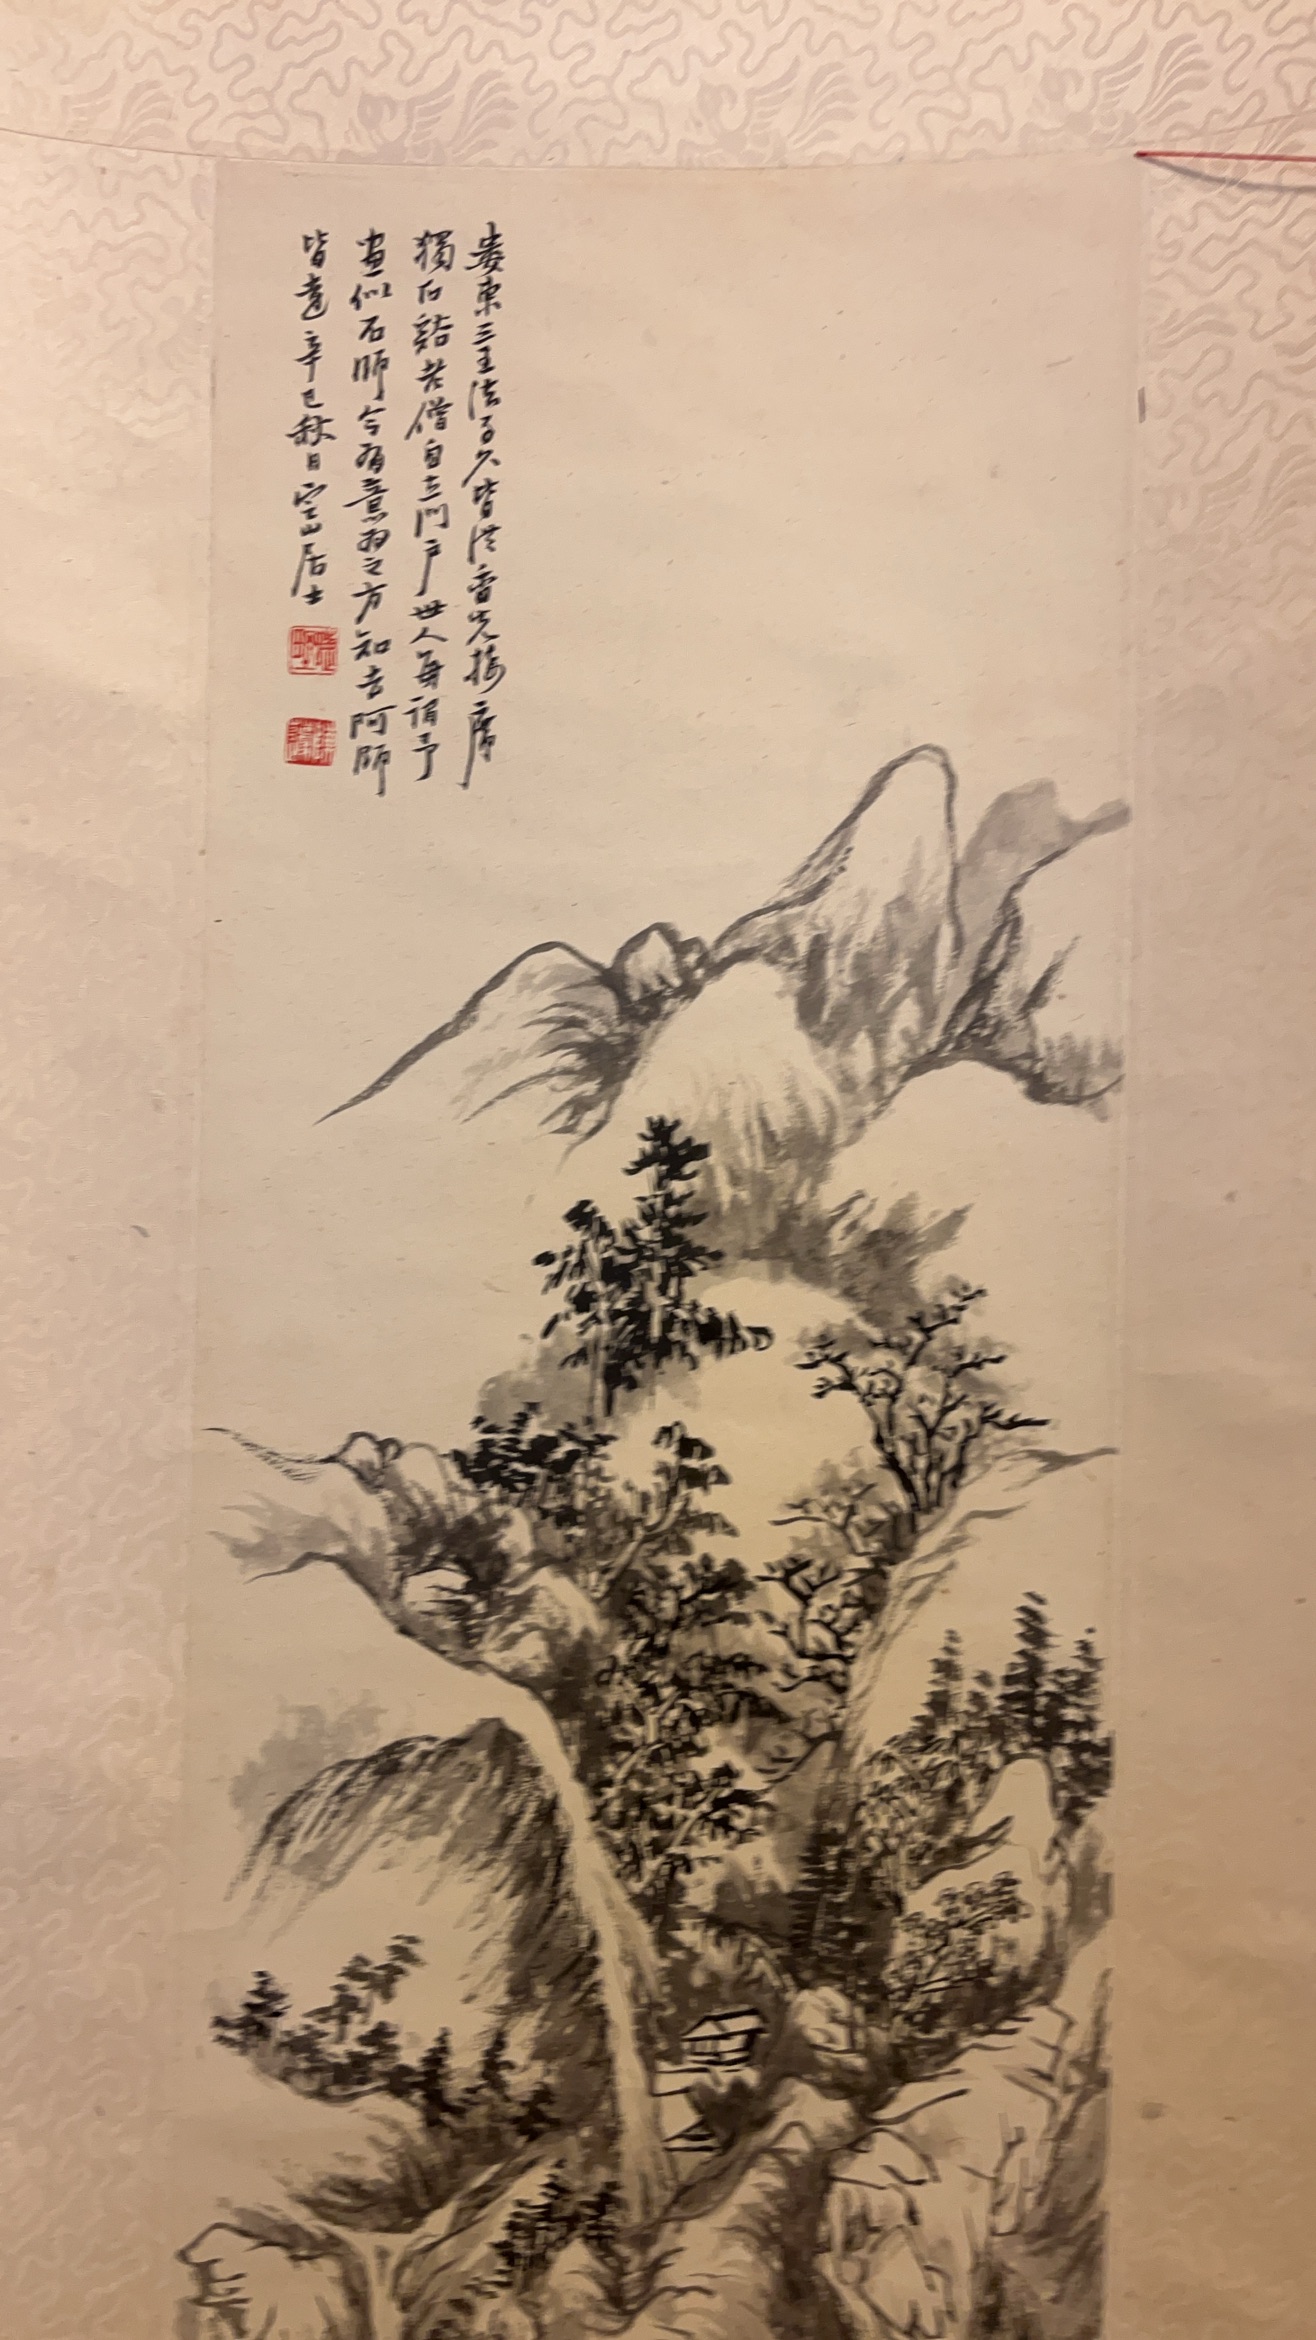 婁東三王法子久皆從香光接席
獨石谿老僧自立門戶世人每謂予
畫似石師今有意為之方知去阿師
皆遠辛巳秋日 山居士